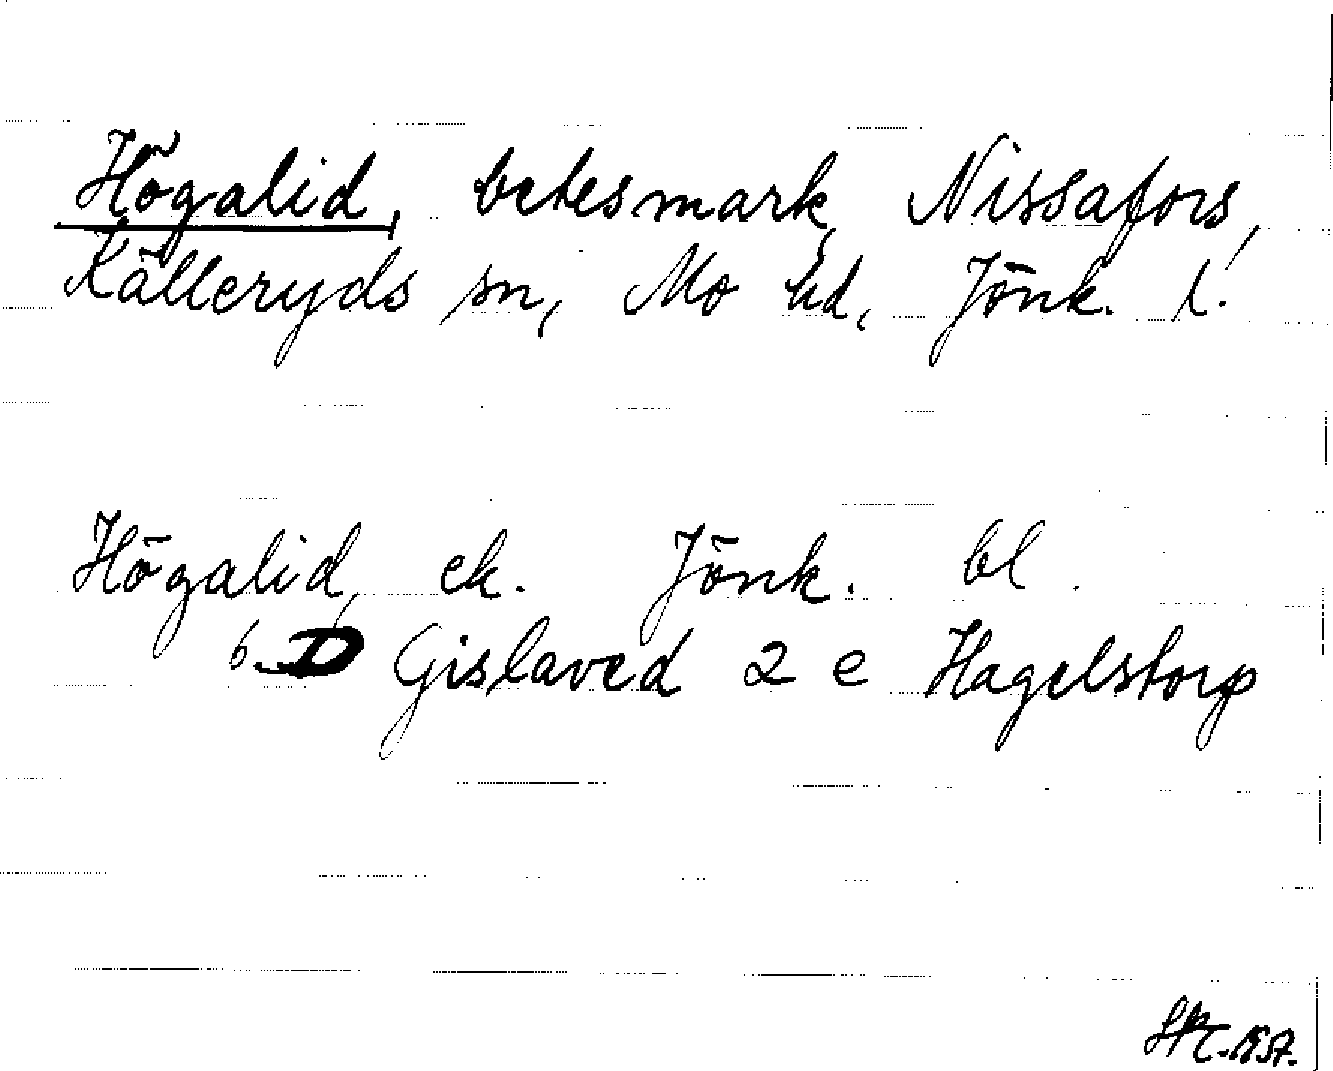 Högalid, betesmark, Nissafors,
Källeryds sn, Mo hd, Jönk. l.
Högalid, ek. Jönk. bl.
6 D Gislaved 2 e Hagelstorp
1957.